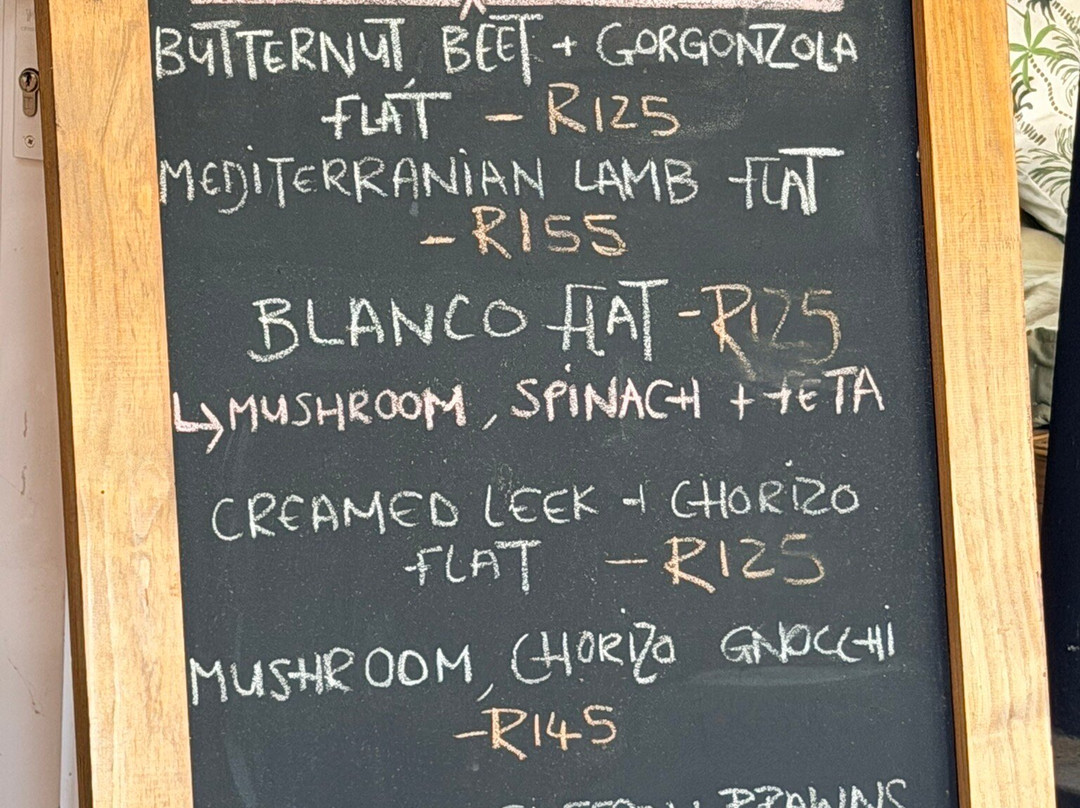 BUTTERNUT, BEET + GORGONZOLA
FLAT - R125
MEDITERRANIAN LAMB FLAT
- R155
BLANCO FLAT - R125
↳ MUSHROOM, SPINACH + FETA
CREAMED LEEK + CHORIZO
FLAT - R125
MUSHROOM, CHORIZO GNOCCHI
- R145
PRAWNS